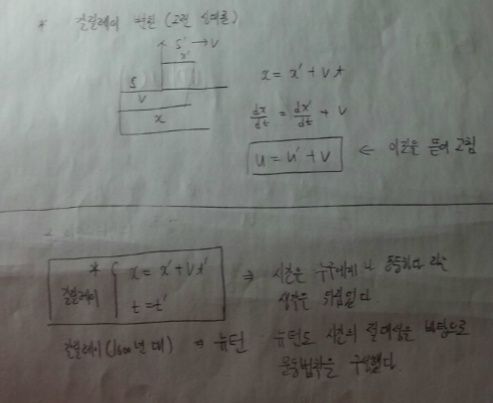 * 갈릴레이 변환 (고전 상대론)
S' → V
x'
S
V
x
x = x' + vt
dx/dt = dx'/dt + V
u = u' + v ← 이것을 뜯어 고침
* 갈릴레이 { x = x' + vt' ⇒ 시간은 누구에게나 동등하다 라는
t = t' 생각은 뒤집었다.
갈릴레이 (1600년대) ⇒ 뉴턴 뉴턴도 시간의 절대성을 바탕으로
운동법칙을 구성했다.